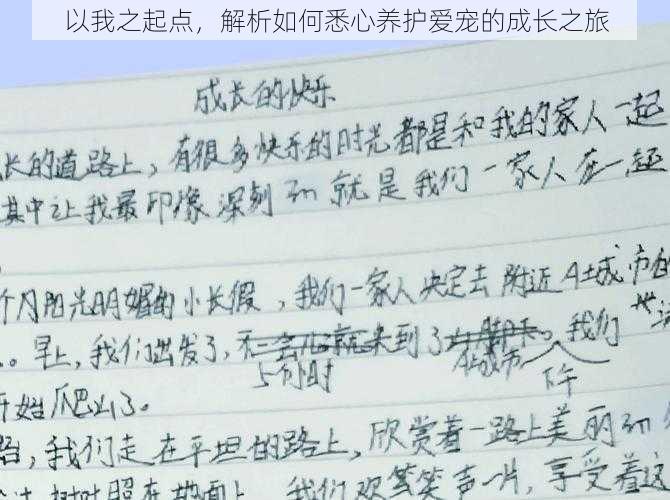 以我之起点，解析如何悉心养护爱宠的成长之旅
成长的快乐
长的道路上，有很多快乐的时光都是和我的家人一起
其中让我最印像深刻的就是我们一家人在一起
个月阳光明媚的小长假，我们一家人决定去附近A城市的
。早上，我们出发了，不一会儿就来到了山脚下。我们
5小时 A城市 下午
开始爬山了。
始，我们走在平坦的路上，欣赏着一路上美丽的
照在地面上，我们欢声笑声一片，享受着这